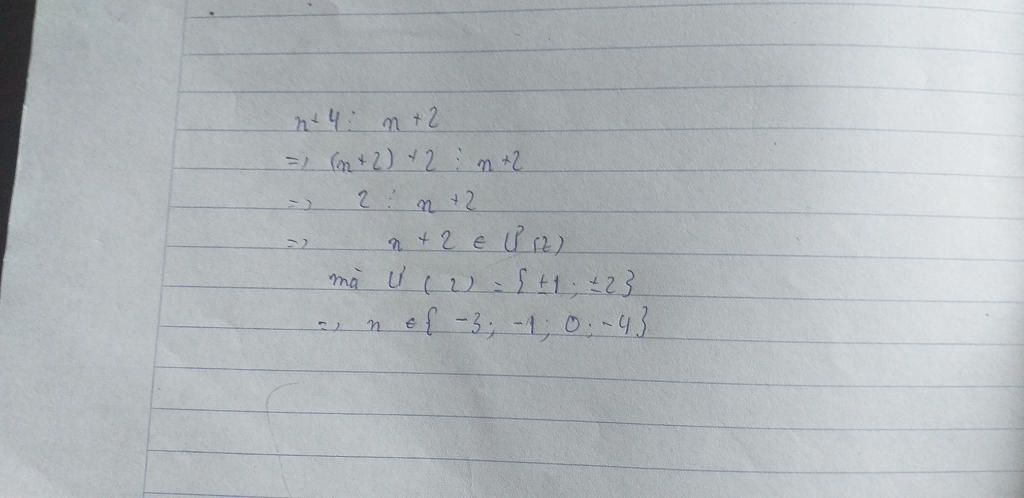 n+4 ⋮ n+2
=> (n+2)+2 ⋮ n+2
=> 2 ⋮ n+2
=> n+2 ∈ Ư(2)
mà Ư(2) = {±1; ±2}
=> n ∈ {-3; -1; 0; -4}